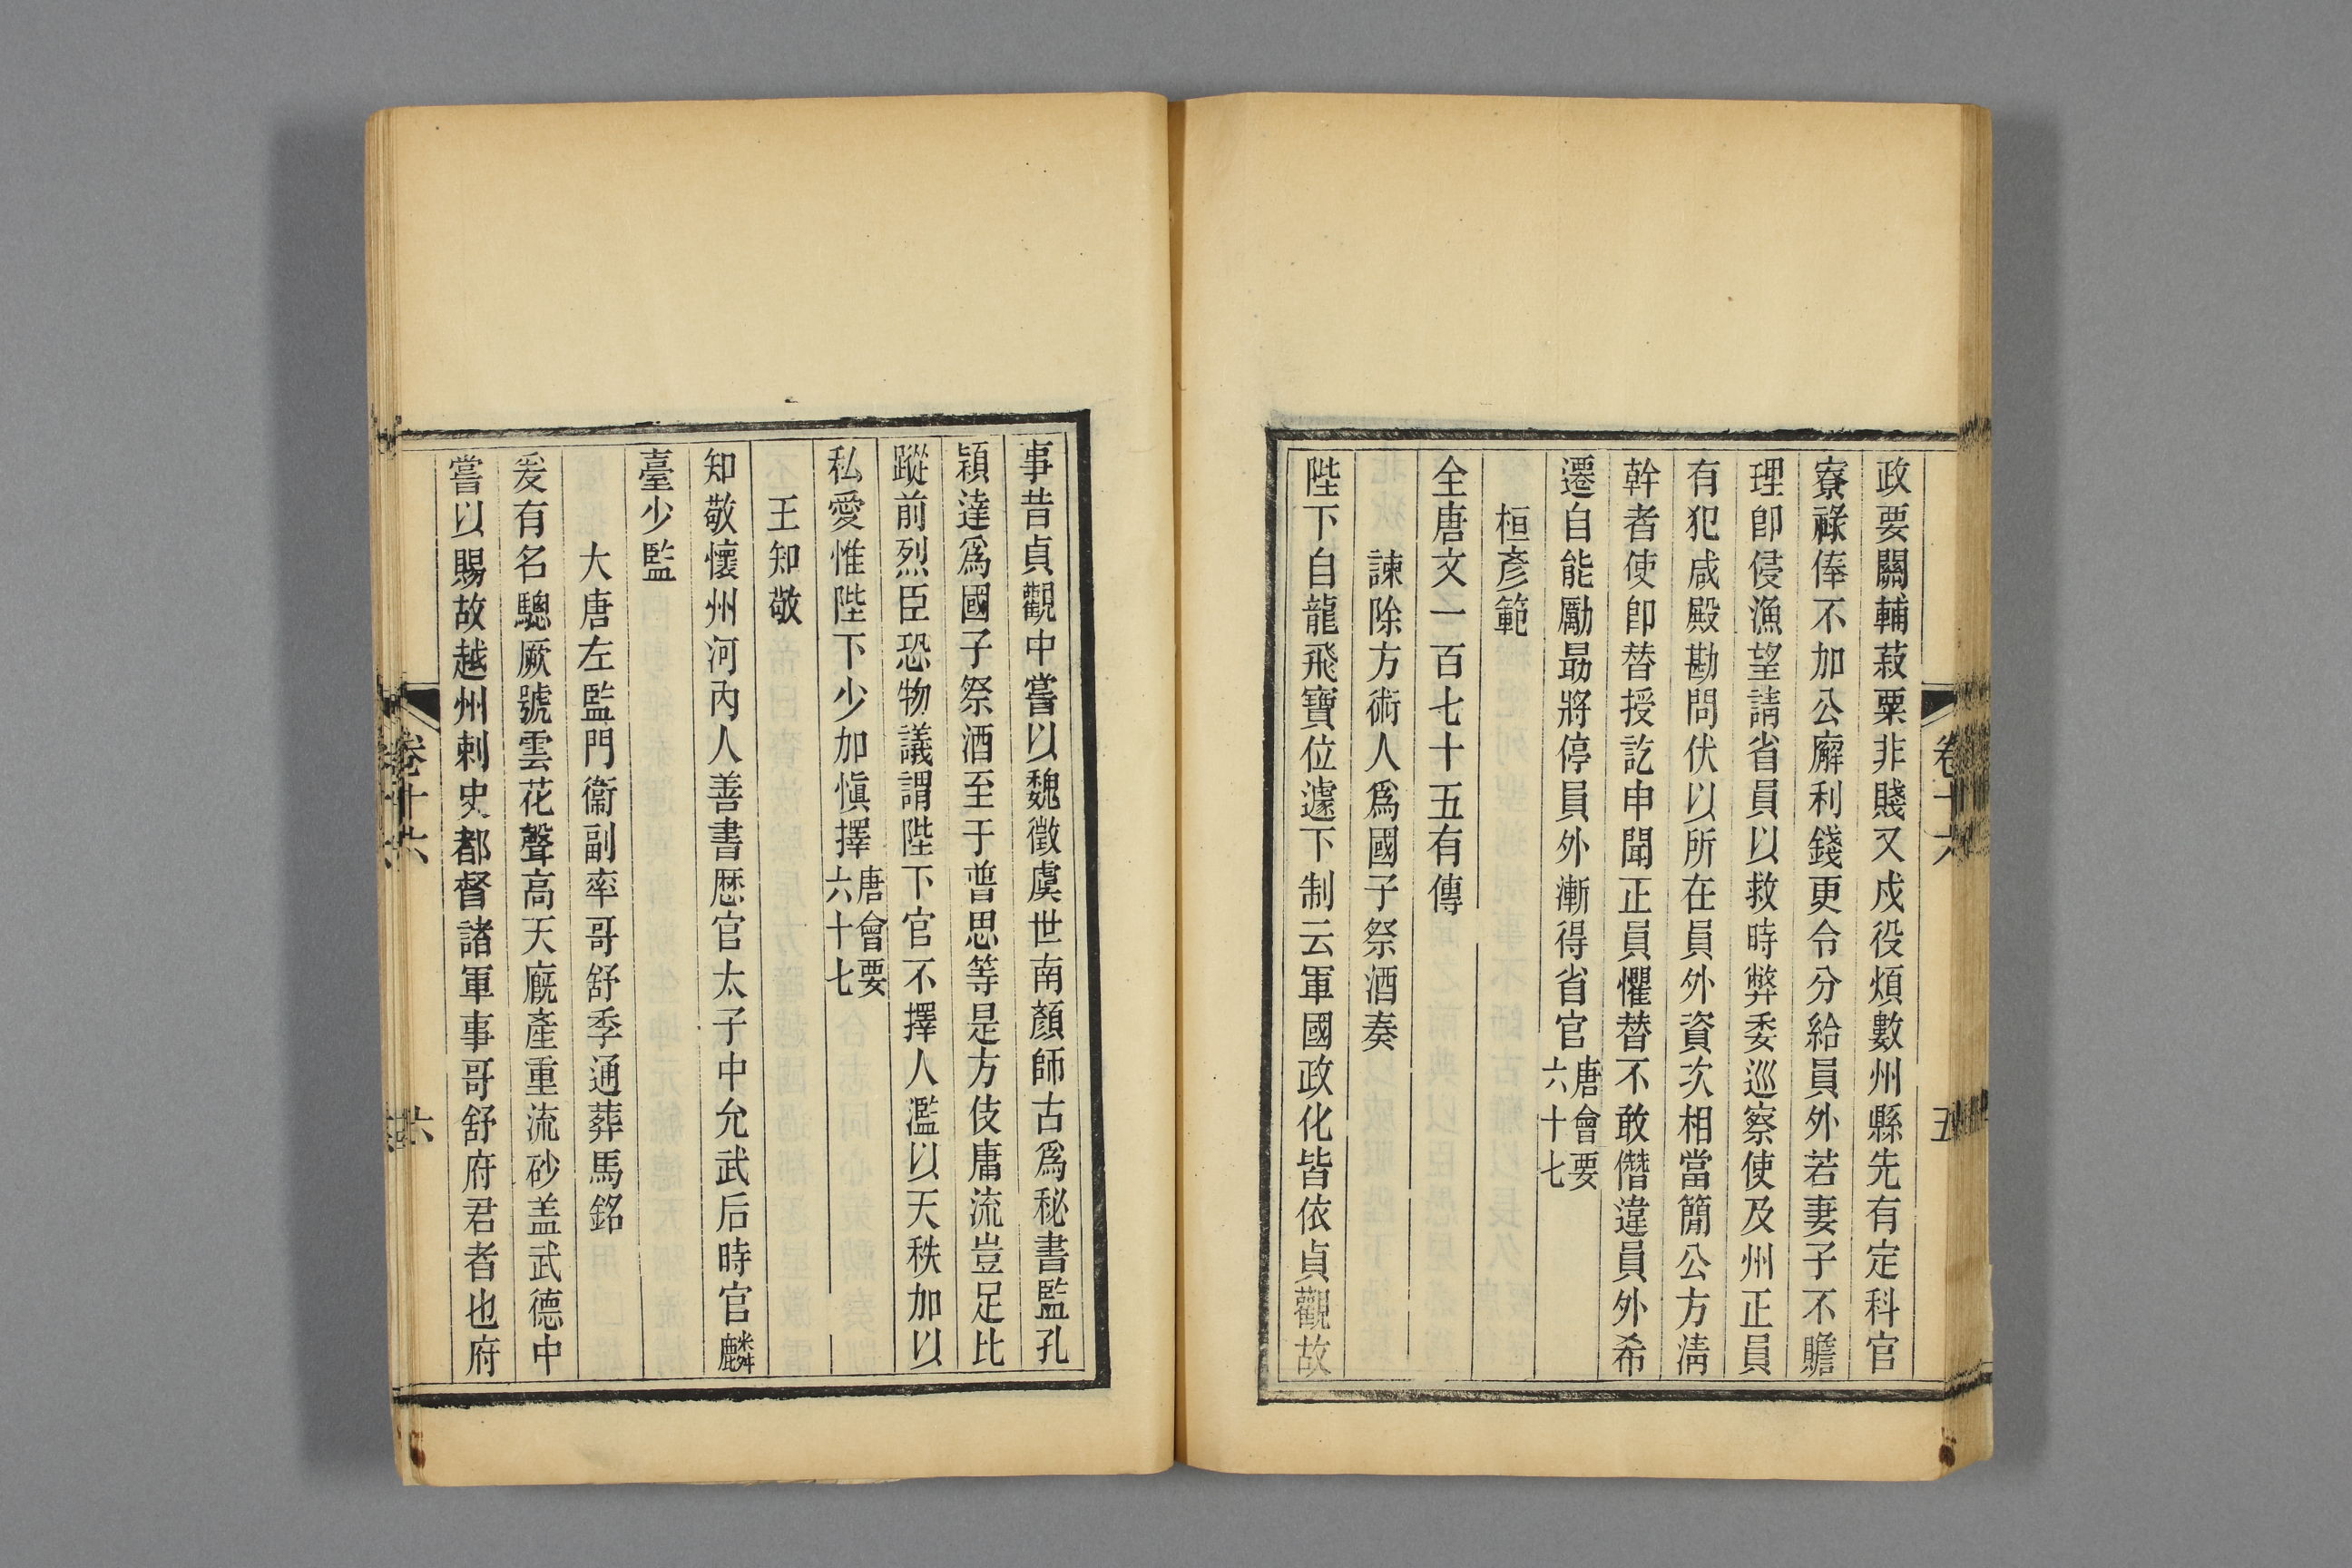 政要關輔菽粟非賤又戍役煩數州縣先有定科官
寮祿俸不加公廨利錢更令分給員外若妻子不贍
理卽侵漁望請省員以救時弊委巡察使及州正員
有犯咸殿勘問伏以所在員外資次相當簡公方淸
幹者使卽替授訖申聞正員懼替不敢僭違員外希
遷自能勵勗將停員外漸得省官唐會要六十七
桓彥範
全唐文一百七十五有傳
諫除方術人爲國子祭酒奏
陛下自龍飛寶位遽下制云軍國政化皆依貞觀故
卷十六
五
事昔貞觀中嘗以魏徵虞世南顏師古爲秘書監孔
穎達爲國子祭酒至于普思等是方伎庸流豈足比
蹤前烈臣恐物議謂陛下官不擇人濫以天秩加以
私愛惟陛下少加愼擇唐會要六十七
王知敬
知敬懷州河內人善書歷官太子中允武后時官麟
臺少監
大唐左監門衞副率哥舒季通葬馬銘
爰有名驄厥號雲花聲高天廐產重流砂盖武德中
嘗以賜故越州剌史都督諸軍事哥舒府君者也府
卷十六
六